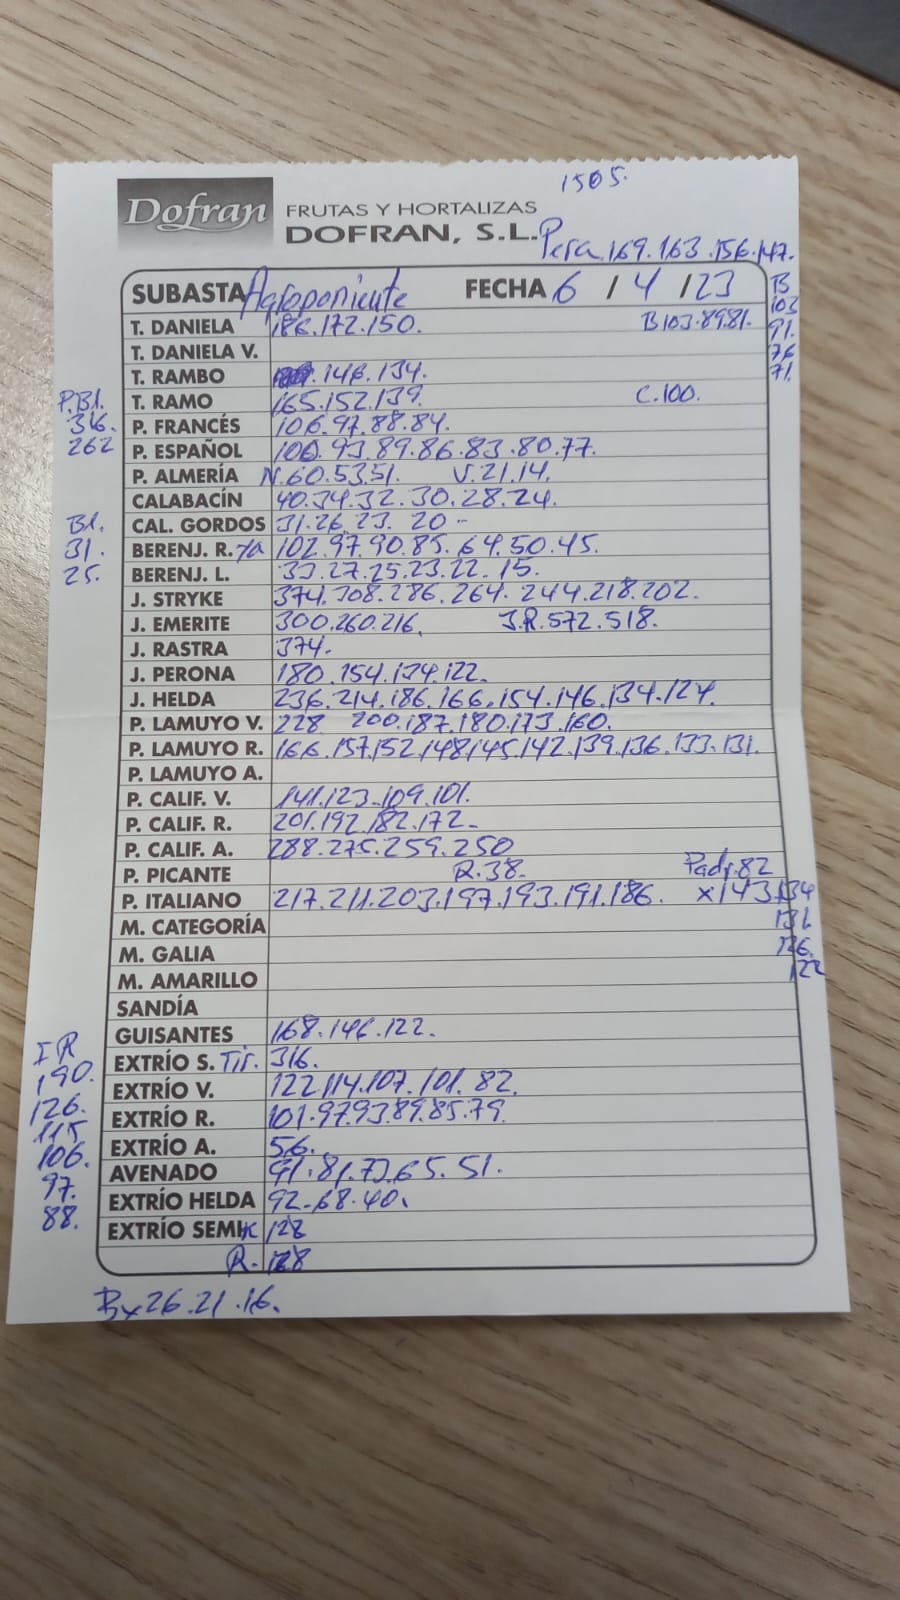 1505.
Dofran FRUTAS Y HORTALIZAS
DOFRAN, S.L. Pera.169.163.156.147.
SUBASTA Agroponiente FECHA 6 / 4 / 23 B
103
T. DANIELA 186.172.150. B103.89.81. 91.
T. DANIELA V. 76
T. RAMBO .146.134. 71.
P.Bl. T. RAMO 165.152.139. C.100.
316. P. FRANCÉS 106.97.88.84.
262 P. ESPAÑOL 100.93.89.86.83.80.77.
P. ALMERÍA N.60.53.51. V.21.14.
CALABACÍN 40.34.32.30.28.24.
Bl. CAL. GORDOS 31.26.23. 20-
31. BERENJ. R. 102.97.90.85.64.50.45.
25. BERENJ. L. 33.27.25.23.22.15.
J. STRYKE 374.308.286.264.244.218.202.
J. EMERITE 300.260.216. J.R.572.518.
J. RASTRA 374.
J. PERONA 180.154.134.122.
J. HELDA 236.214.186.166.154.146.134.124.
P. LAMUYO V. 228 200.187.180.173.160.
P. LAMUYO R. 166.157.152.148.145.142.139.136.133.131.
P. LAMUYO A.
P. CALIF. V. 141.123.109.101.
P. CALIF. R. 201.192.182.172-
P. CALIF. A. 288.275.259.250
P. PICANTE R.38- Padr.82
P. ITALIANO 217.211.203.197.193.191.186. x143.134
M. CATEGORÍA 131.
M. GALIA 126.
M. AMARILLO 122
SANDÍA
GUISANTES 168.146.122.
I R EXTRÍO S. Tir. 316.
190. EXTRÍO V. 122.114.107.101.82.
126. EXTRÍO R. 101.97.93.89.85.79.
115 EXTRÍO A. 56.
106. AVENADO 91.81.72.65.51.
97. EXTRÍO HELDA 92-68.40.
88. EXTRÍO SEMI 128
R. 128
Bx26.21.16.